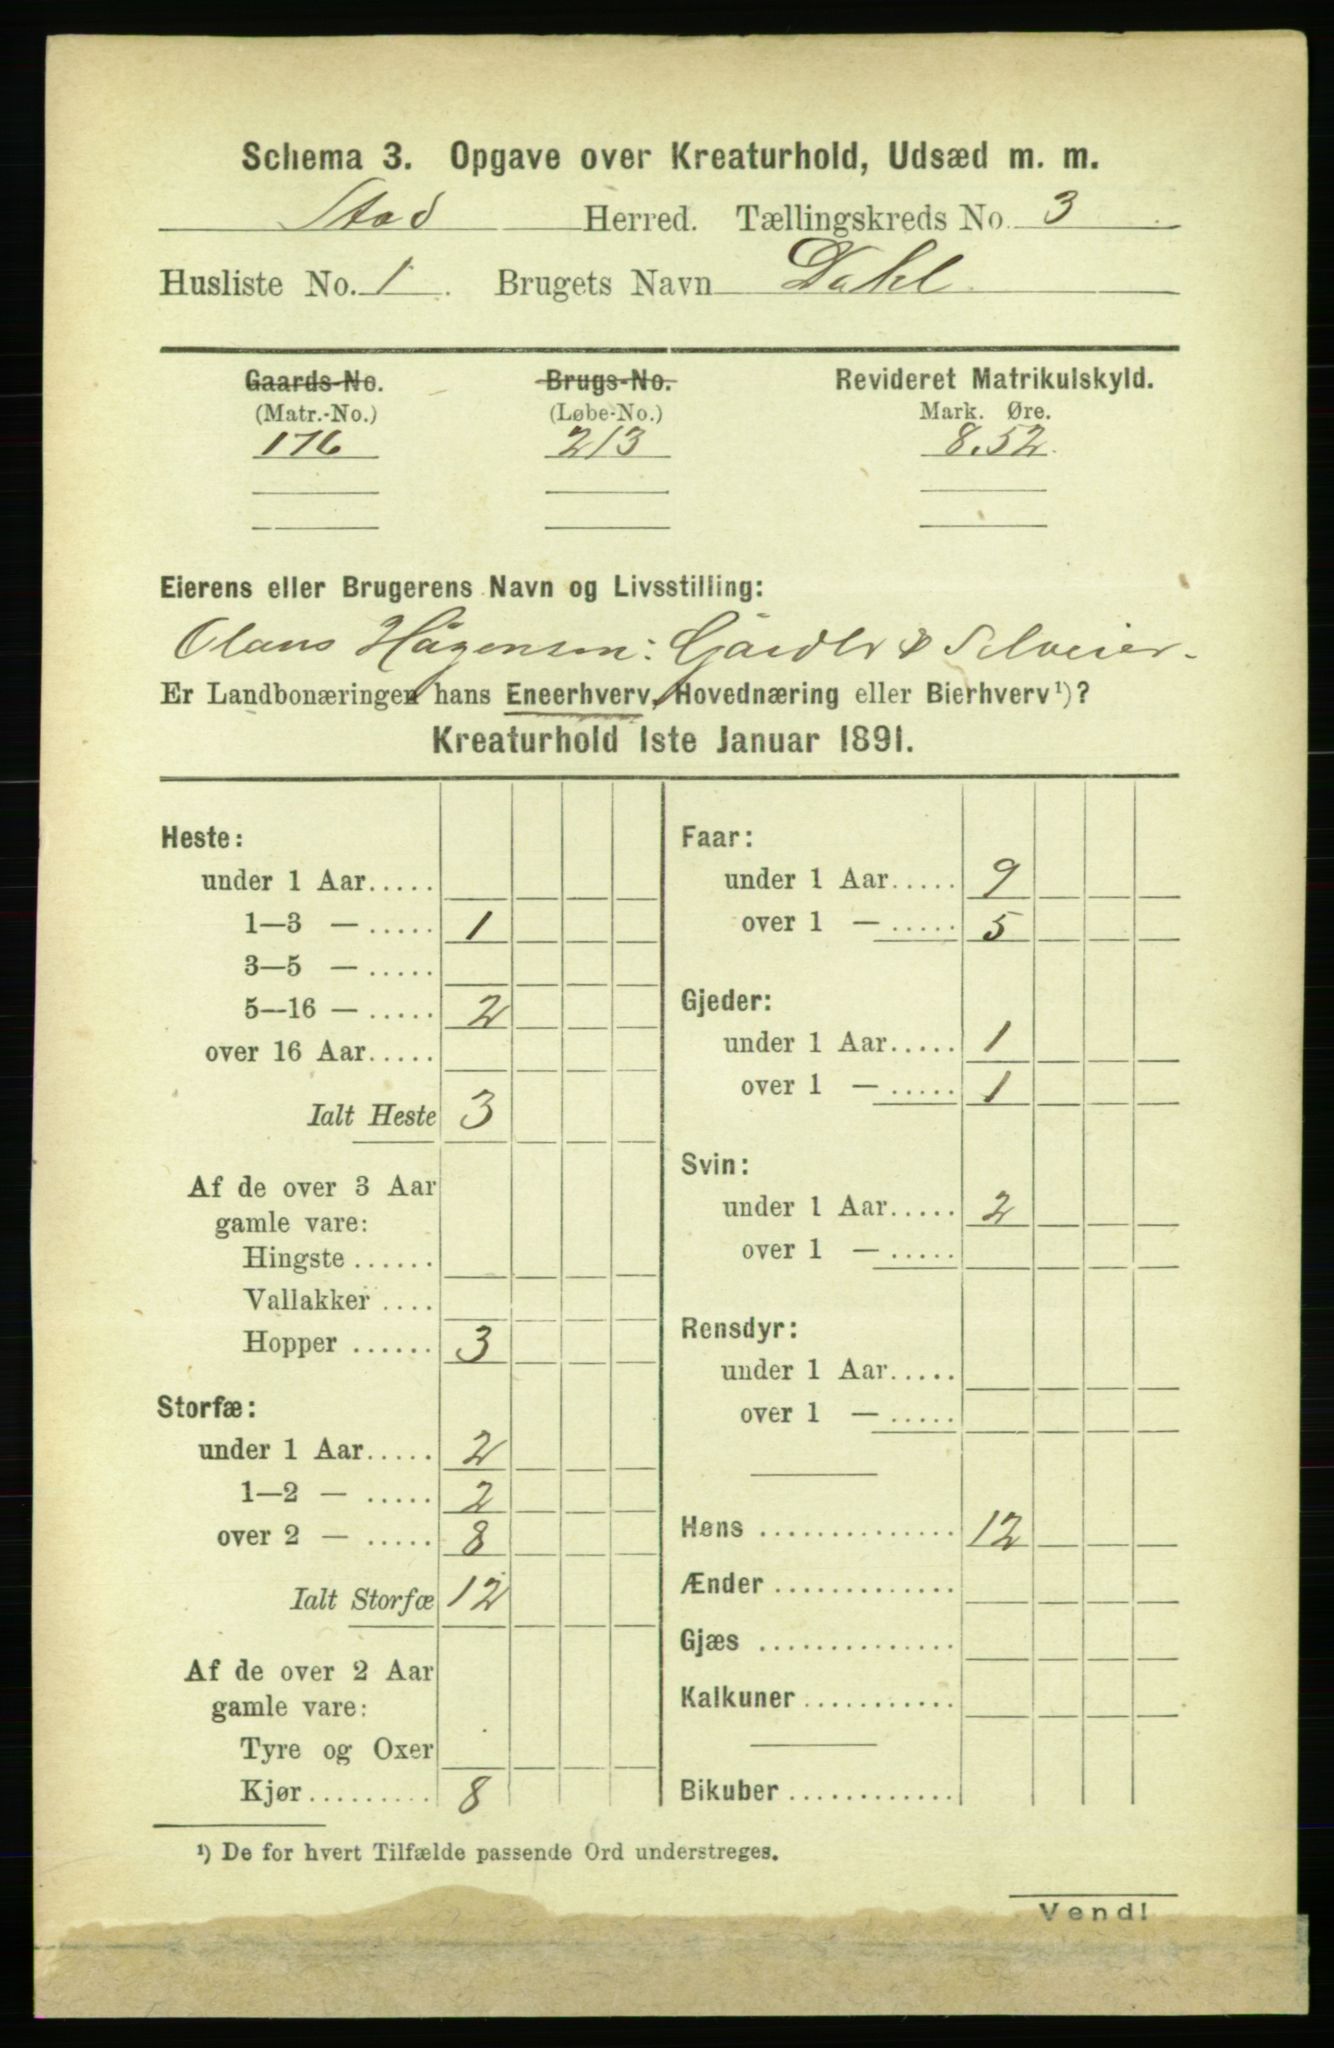 Schema 3. Opgave over Kreaturhold, Udsæd m. m.
Stod Herred. Tællingskreds No. 3
Husliste No. 1. Brugets Navn Dahl
Gaards-No. Brugs-No. Revideret Matrikulskyld.
(Matr.-No.) (Løbe-No.) Mark. Øre.
176 213 8.52
Eierens eller Brugerens Navn og Livsstilling:
Olaus Hågensen: Gårdbr & Selveier.
Er Landbonæringen hans Eneerhverv, Hovednæring eller Bierhverv¹)?
Kreaturhold 1ste Januar 1891.
Heste:
under 1 Aar.....
1—3 — ..... 1
3—5 — .....
5—16 — ..... 2
over 16 Aar.....
Ialt Heste 3
Af de over 3 Aar
gamle vare:
Hingste ......
Vallakker ....
Hopper ...... 3
Storfæ:
under 1 Aar..... 2
1—2 — ..... 2
over 2 — ..... 8
Ialt Storfæ 12
Af de over 2 Aar
gamle vare:
Tyre og Oxer
Kjør......... 8
Faar:
under 1 Aar..... 9
over 1 — ..... 5
Gjeder:
under 1 Aar..... 1
over 1 — ..... 1
Svin:
under 1 Aar..... 2
over 1 — .....
Rensdyr:
under 1 Aar.....
over 1 — .....
Høns .............. 12
Ænder .............
Gjæs ..............
Kalkuner ...........
Bikuber ............
¹) De for hvert Tilfælde passende Ord understreges.
Vend!